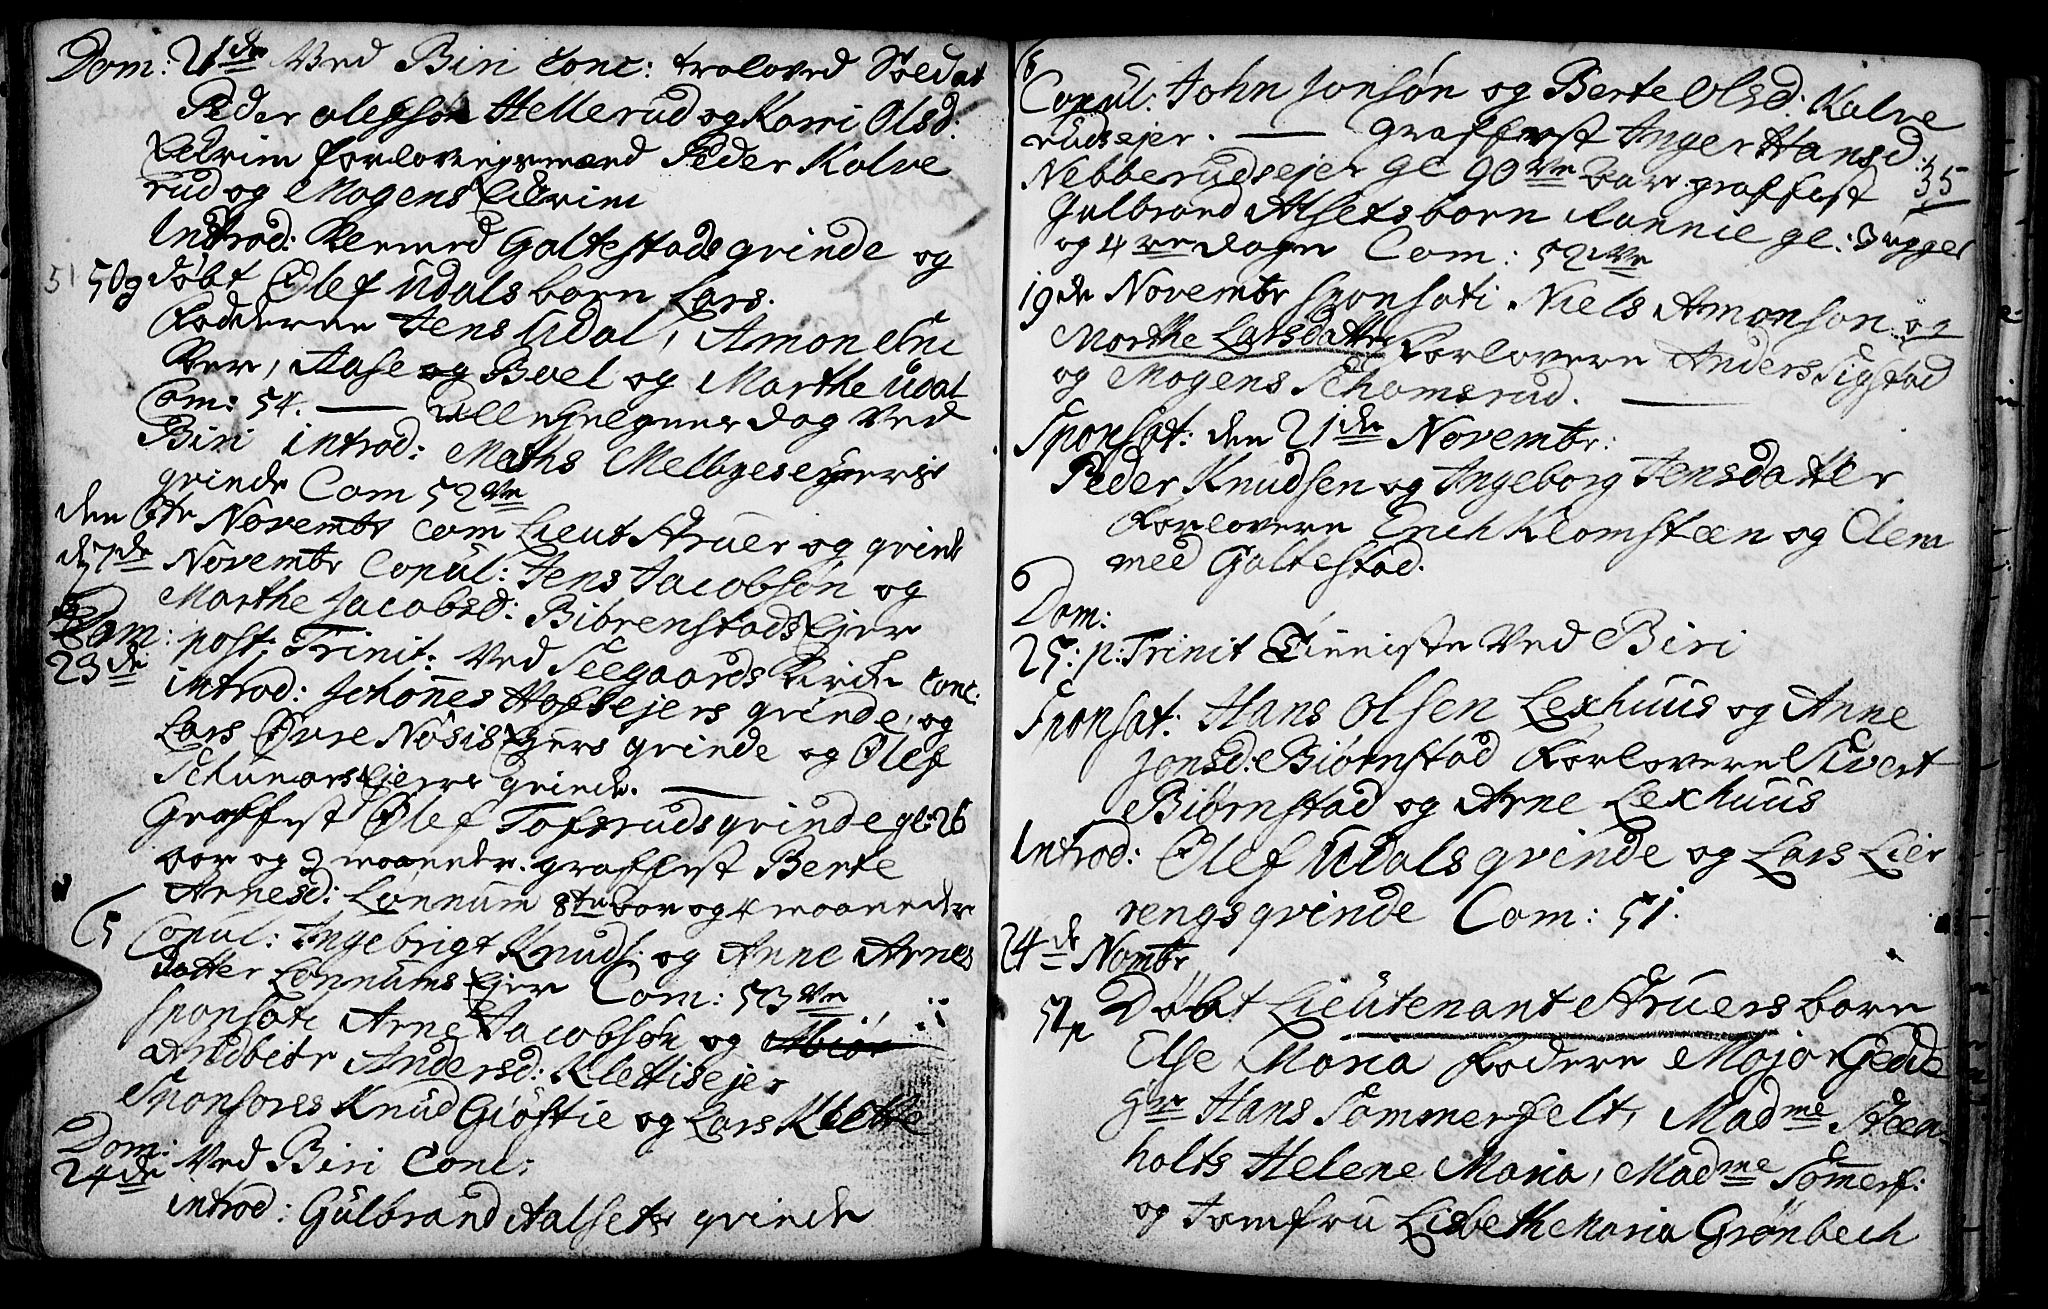 Dom: 21de Ved Biri Conc: troloved Soldat
Peder Olefsøn Hellerud og Karri Olsd.
forlovningsmænd Peder Kalve
rud og Mogens
Introd: Galtestads qvinde og
51 50g døbt Olef Udals barn Lars.
Fadderne Jens Udal, Amon
Aase og Boel og Marthe Udal
Com: 54. — Alle Helgener dag Ved
Biri introd: Mathis Melbyes
qvinde Com 52ve
den 6te Novembr Com Lieut Struer og qvinde
d 7de Novembr Copul: Jens Jacobsøn og
Marthe Jacobsd: Biörenstads Ejer
Dom: post: Trinit: Ved Seegaards Kirche Conc:
23de introd: Johannes Hofsejers qvinde, og
Lars Øvre Nøsis Ejers qvinde og Olef
Ejers qvinde. —
Graffest Olef Tofsruds qvinde gl: 26
aar og 9 maaneder. graffest Berte
Arnesd: Lønnum 8te aar og 4 maaneder
5 Copul: Ingebrigt Knuds: og Anne Arnes
datter Lønnums Ejer Com: 53ve
Sponsati Arne Jacobsøn og
Andersd: Klettisejer
Sponsores Knud Giøstie og Lars Klette
Dom:
24de Ved Biri Conc:
introd: Gulbrand Aalsets qvinde
6
Copul: John Jonsøn og Berte Olsd: Kalve
rudsejer. — graffest Inger Hansd:
Nebberudsejer gl 90ve aar. graffest 35
Gulbrand Alsets barn Rannie gl: 3 ugger
og 4re dage Com: 52ve
19de Novembr Sponsati Niels Amonson og
Marthe Larsdatter Forlovere Anders Sigstad
og Mogens Schomsrud. —
Sponsat: den 21de Novembr:
Peder Knudsen og Ingeborg Jensdatter
Forlovere Erich Klomsteen og Clem
med Galtestad.
Dom:
25: p: Trinit Tieniste Ved Biri
Sponsat: Hans Olsen Lexhuus og Anne
Jonsd: Biörnstad Forlovere Sivert
Biörnstad og Arne Lexhuus
Introd: Olef Udals qvinde og Lars Lier
rengs qvinde Com: 51.
24de Nombr
51 Döbt Lieutenant Struers barn
Else Maria Fadere Major Gedde
Hr Hans Sommerfelt, Madme Steen
holts Helene Maria, Madme Somerf:
og Jomfru Lisbeth Maria Grønbech